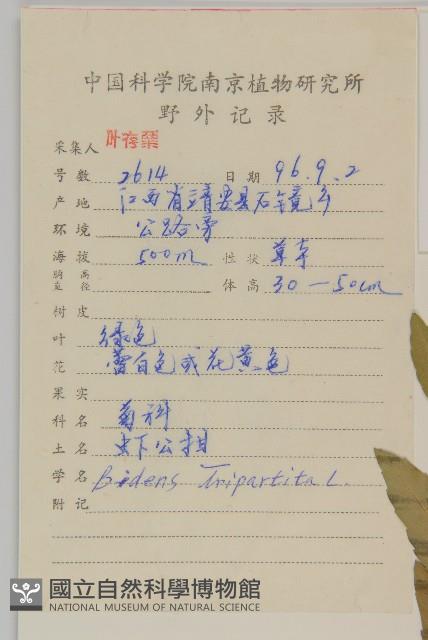 中国科学院南京植物研究所
野外记录
采集人 叶存粟
号数 2614 日期 96.9.2
产地 江西省靖安县石镜乡
环境 公路旁
海拔 500m 性状 草本
胸高直径 体高 30—50cm
树皮
叶 绿色
花 蕾白色或花黄色
果实
科名 菊科
土名
学名 Bidens Tripartita L.
附记
國立自然科學博物館
NATIONAL MUSEUM OF NATURAL SCIENCE